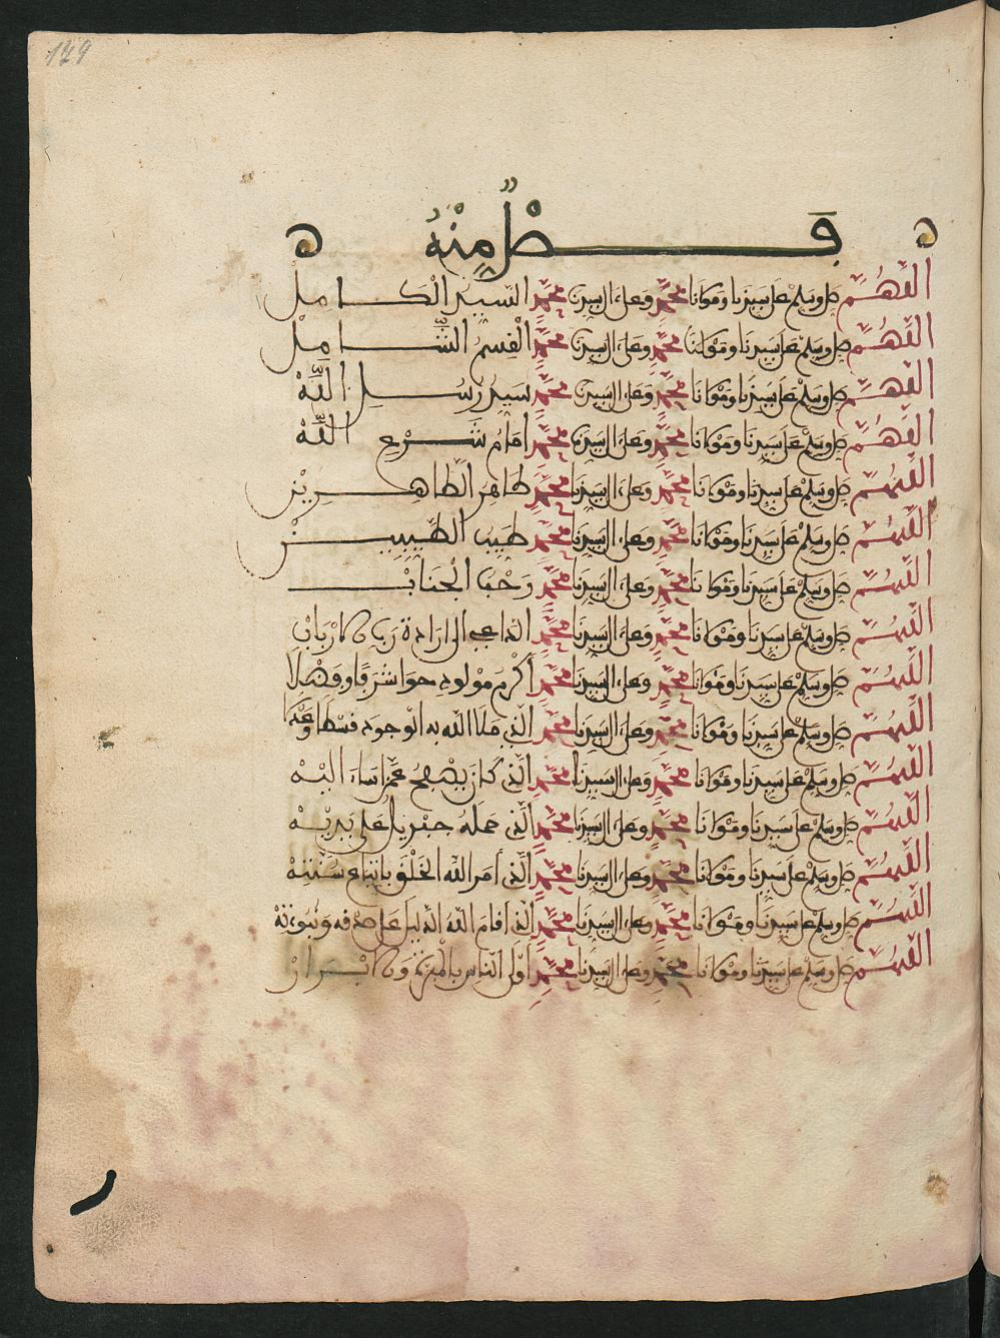 129
فصل منه
اللهم صل وسلم على سيدنا ومولانا محمد وعلى ءال سيدنا محمد السيد الكامل
اللهم صل وسلم على سيدنا ومولانا محمد وعلى ءال سيدنا محمد القسم الشامل
اللهم صل وسلم على سيدنا ومولانا محمد وعلى ءال سيدنا محمد سيد رسل الله
اللهم صل وسلم على سيدنا ومولانا محمد وعلى ءال سيدنا محمد امام شرع الله
اللهم صل وسلم على سيدنا ومولانا محمد وعلى ءال سيدنا محمد طاهر الطاهرين
اللهم صل وسلم على سيدنا ومولانا محمد وعلى ءال سيدنا محمد طيب الطيبين
اللهم صل وسلم على سيدنا ومولانا محمد وعلى ءال سيدنا محمد رحب الجناب
اللهم صل وسلم على سيدنا ومولانا محمد وعلى ءال سيدنا محمد الداعي الى ارادة رب الارباب
اللهم صل وسلم على سيدنا ومولانا محمد وعلى ءال سيدنا محمد اكرم مولود حوا شرفا وفضلا
اللهم صل وسلم على سيدنا ومولانا محمد وعلى ءال سيدنا محمد الذي ملا الله به الوجود قسطا وعدلا
اللهم صل وسلم على سيدنا ومولانا محمد وعلى ءال سيدنا محمد الذي كان يصفح عمن اساء اليه
اللهم صل وسلم على سيدنا ومولانا محمد وعلى ءال سيدنا محمد الذي حمله جبريل على يديه
اللهم صل وسلم على سيدنا ومولانا محمد وعلى ءال سيدنا محمد الذي امر الله الخلق باتباع سنته
اللهم صل وسلم على سيدنا ومولانا محمد وعلى ءال سيدنا محمد الذي اقام الله الدليل على صدقه ونبوته
اللهم صل وسلم على سيدنا ومولانا محمد وعلى ءال سيدنا محمد اولى الناس بالمزية والابرار